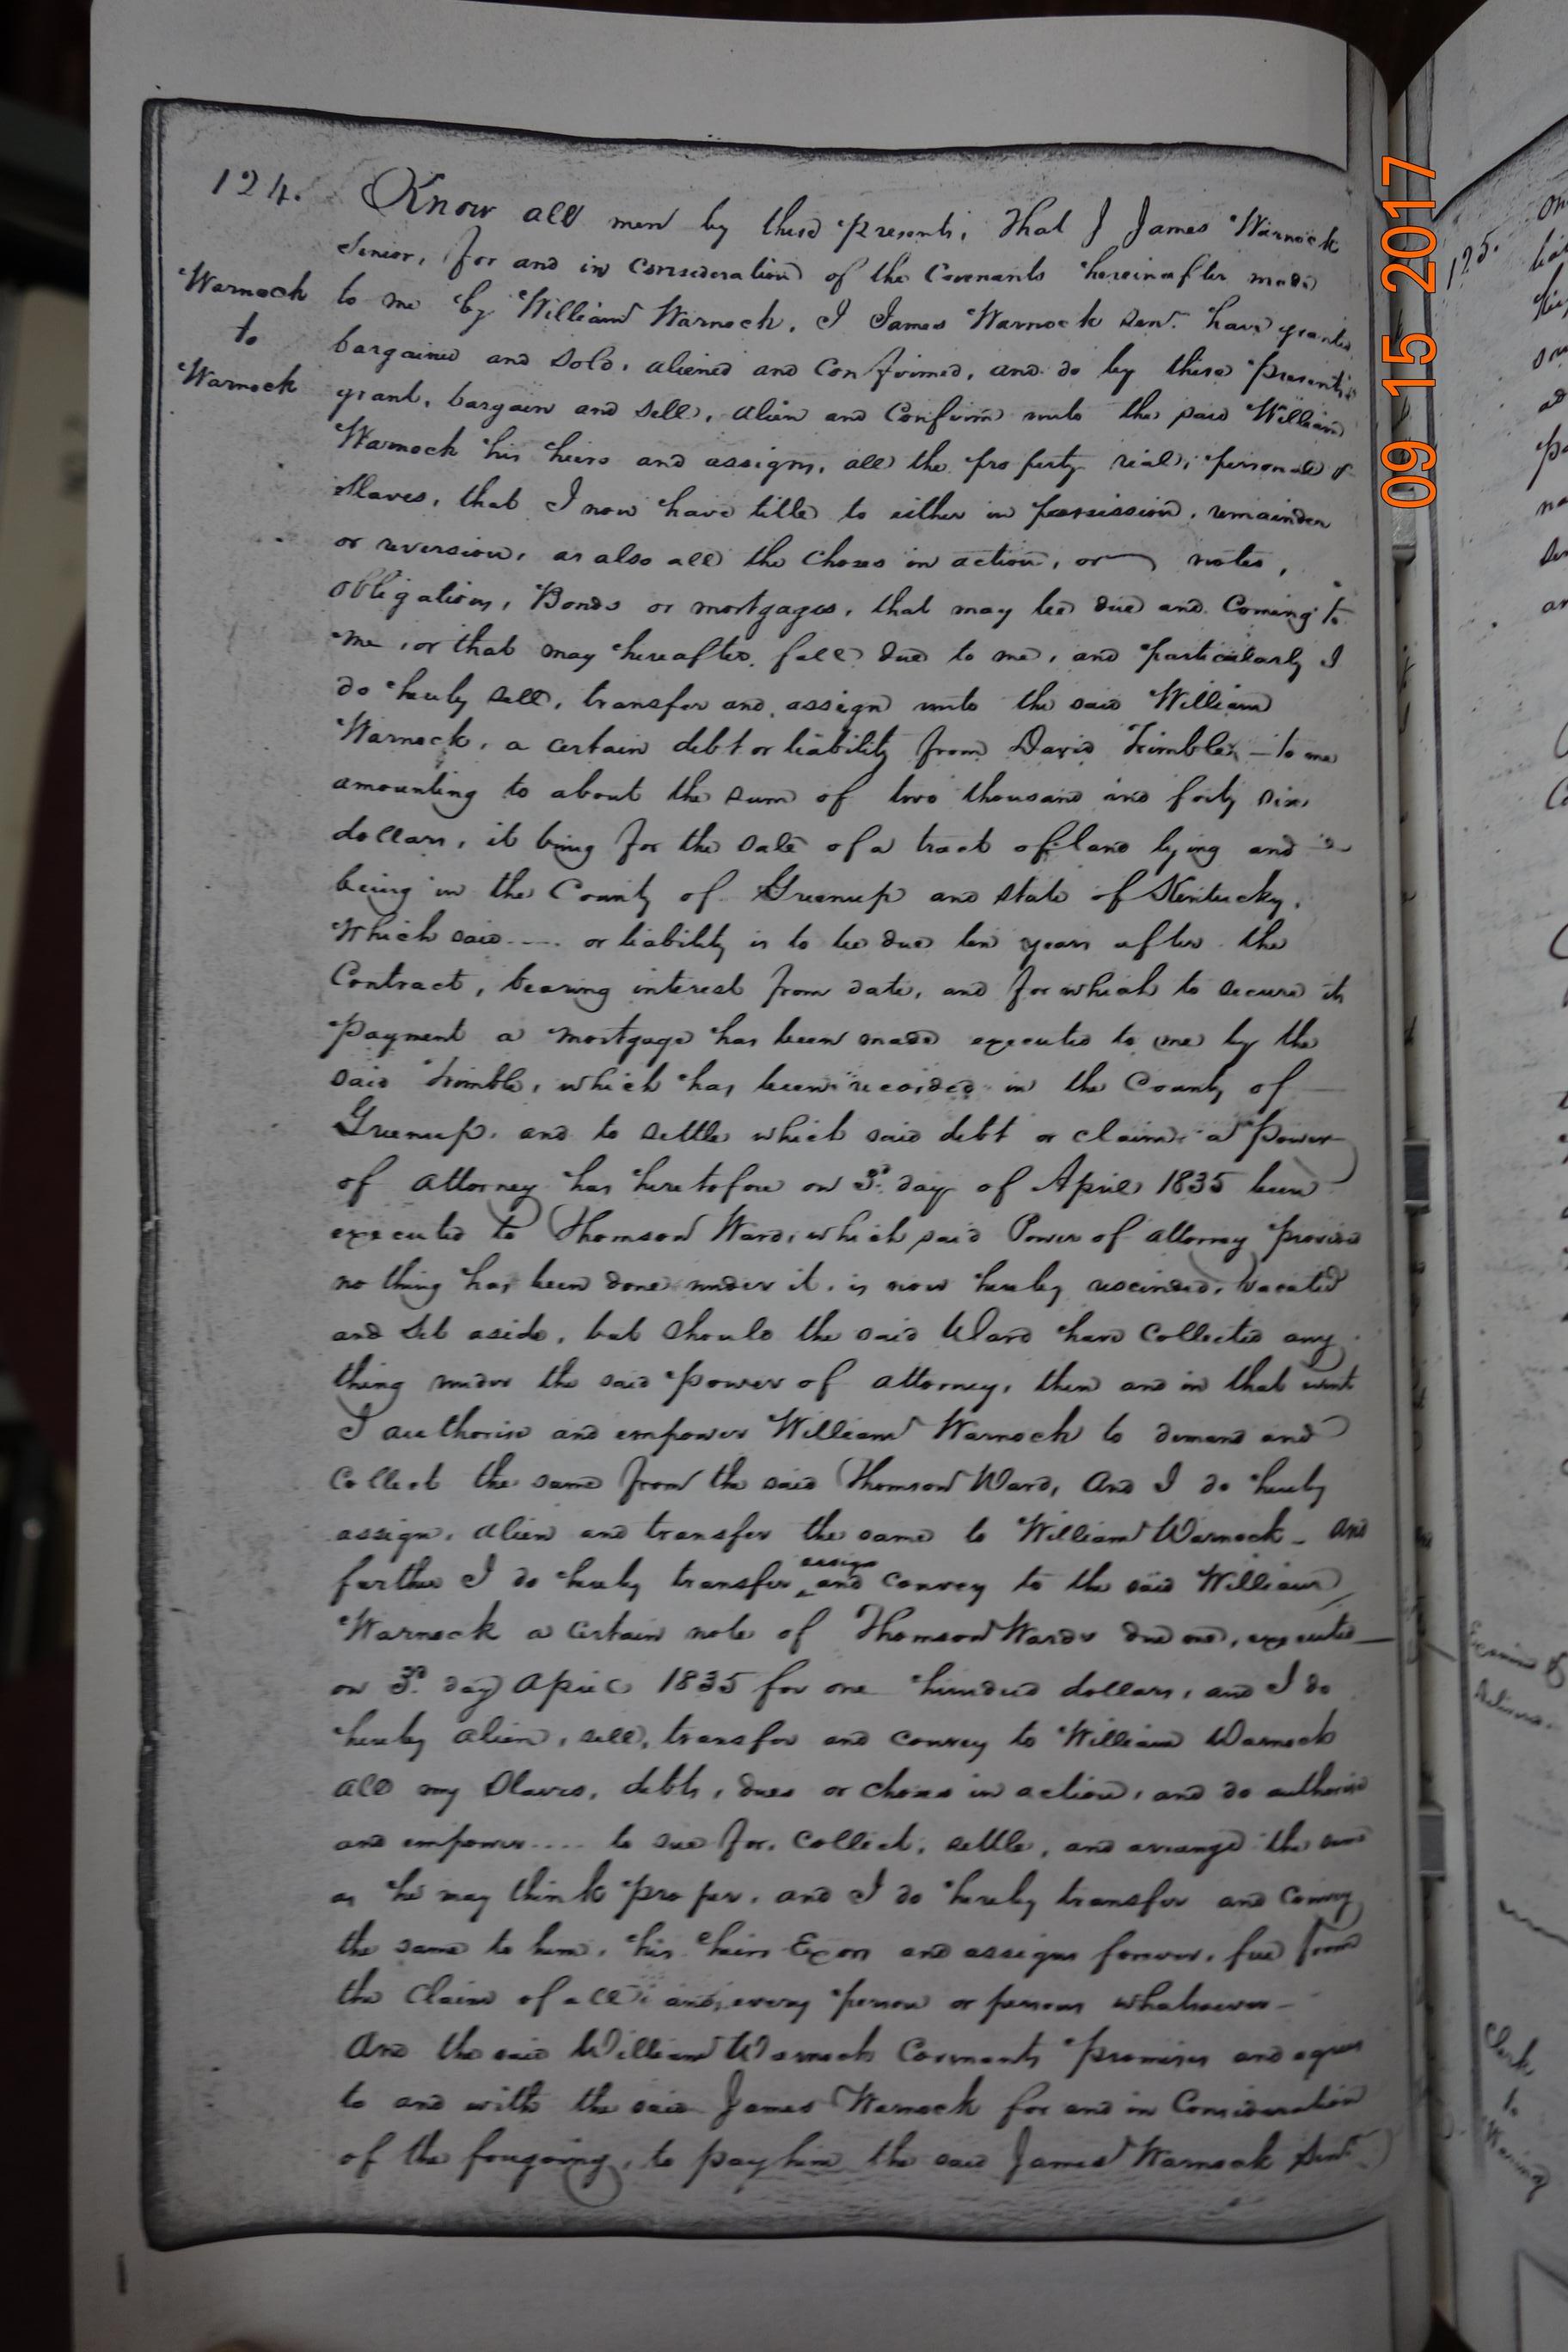 124.
Know all men by these Presents, That I James Warnock
Senior, for and in Consideration of the Covenants hereinafter made
Warnock
to
Warnock
to me by William Warnock, I James Warnock Senr. have granted
bargained and sold, aliened and Confirmed, and do by these Presents
grant, bargain and sell, alien and Confirm unto the said William
Warnock his heirs and assigns, all the property real, personal &
slaves, that I now have title to either in possession, remainder
or reversion, as also all the choses in action, or notes,
obligations, Bonds or mortgages, that may be due and Coming to
me, or that may hereafter fall due to me, and particularly I
do hereby sell, transfer and assign unto the said William
Warnock, a certain debt or liability from David Trimble, - to me
amounting to about the sum of two thousand and forty six
dollars, it being for the sale of a tract of land lying and
being in the County of Greenup and State of Kentucky,
Which said .... or liability is to be due ten years after the
Contract, bearing interest from date, and for which to secure its
Payment a mortgage has been made executed to me by the
said Trimble, which has been recorded in the County of
Greenup, and to settle which said debt or claim, a Power
of attorney has heretofore on 3d. day of April 1835 been
executed to Thomson Ward, which said Power of attorney provided
nothing has been done under it, is now hereby rescinded, vacated
and set aside, but should the said Ward have Collected any
thing under the said Power of attorney, then and in that event
I authorise and empower William Warnock to demand and
Collect the same from the said Thomson Ward, And I do hereby
assign, alien and transfer the same to William Warnock - and
further I do hereby transfer assign and convey to the said William
Warnock a certain note of Thomson Wards due one, executed
on 3d. day April 1835 for one hundred dollars, and I do
hereby alien, sell, transfer and convey to William Warnock
all my Slaves, debts, dues or choses in action, and do authorise
and empower .... to sue for, collect, settle, and arrange the same
as he may think proper, and I do hereby transfer and Convey
the same to him, his heirs Exors and assigns forever, free from
the Claim of all and every person or persons whatsoever -
And the said William Warnock Covenants Promises and agrees
to and with the said James Warnock for and in Consideration
of the foregoing, to pay him the said James Warnock Senr.
09 15 2017
125.
Clark
to
Waring